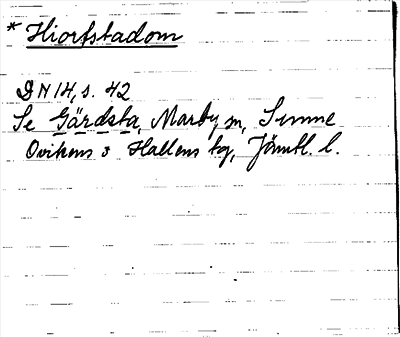 * Hiorfstadom
DN 14, s. 42
Se Gärdsta, Marby sn, Sunne
Ovikens o Hallens tg, Jämtl. l.